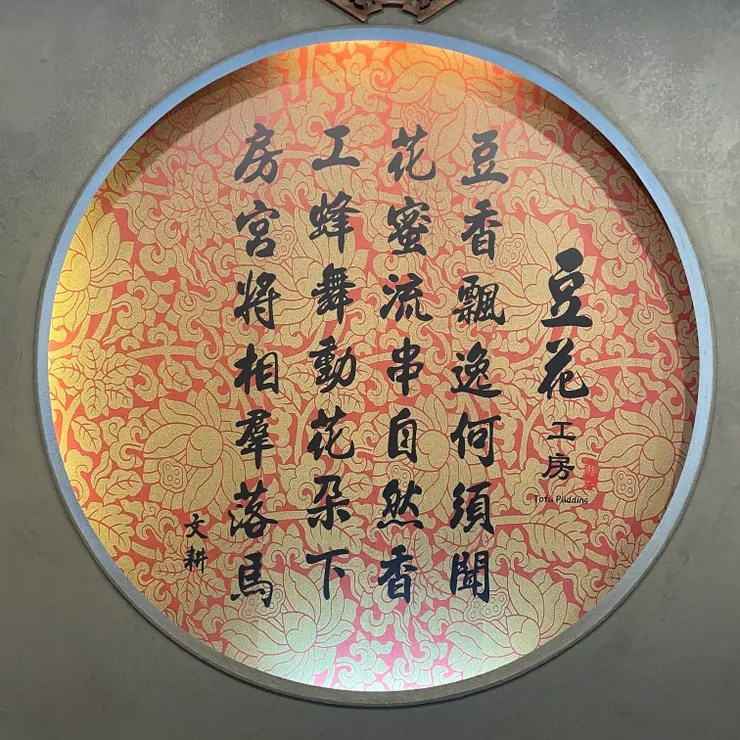 豆花
工房
Tofu Pudding
豆香飄逸何須聞
花蜜流串自然香
工蜂舞動花朵下
房宮將相羣落馬
文耕